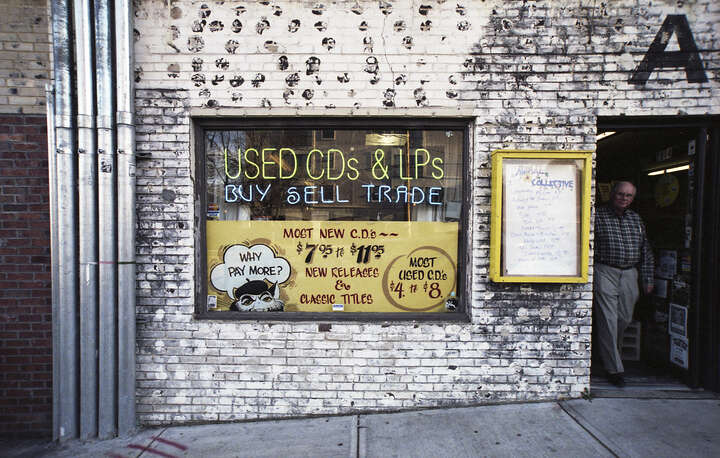 A
USED CDs & LPs
BUY SELL TRADE
MOST NEW C.D.s ~~
$7.95 to $11.95
NEW RELEASES
&
CLASSIC TITLES
WHY
PAY MORE?
MOST
USED C.D.s
$4. to $8.
COLLECTIVE